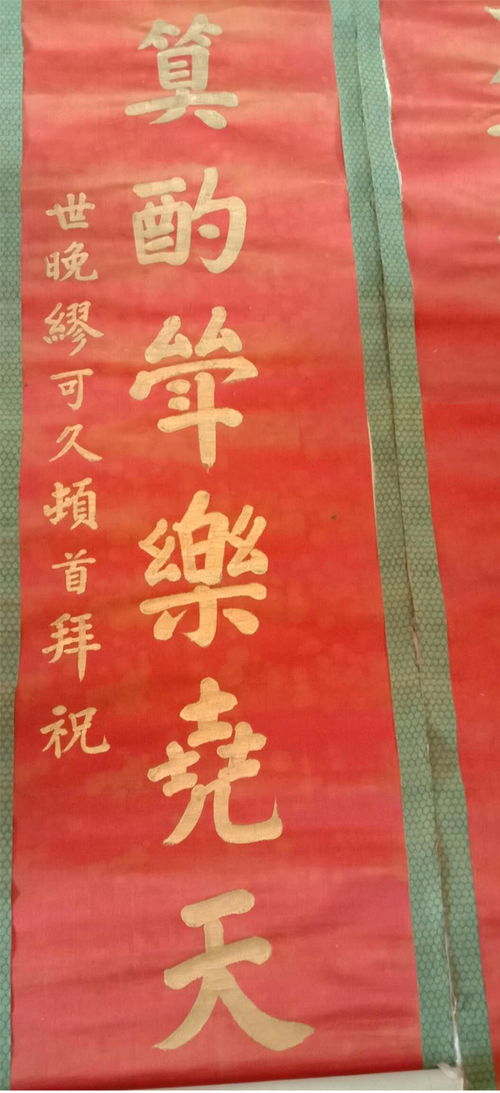 算酌斝樂堯天
世晚繆可久頓首拜祝